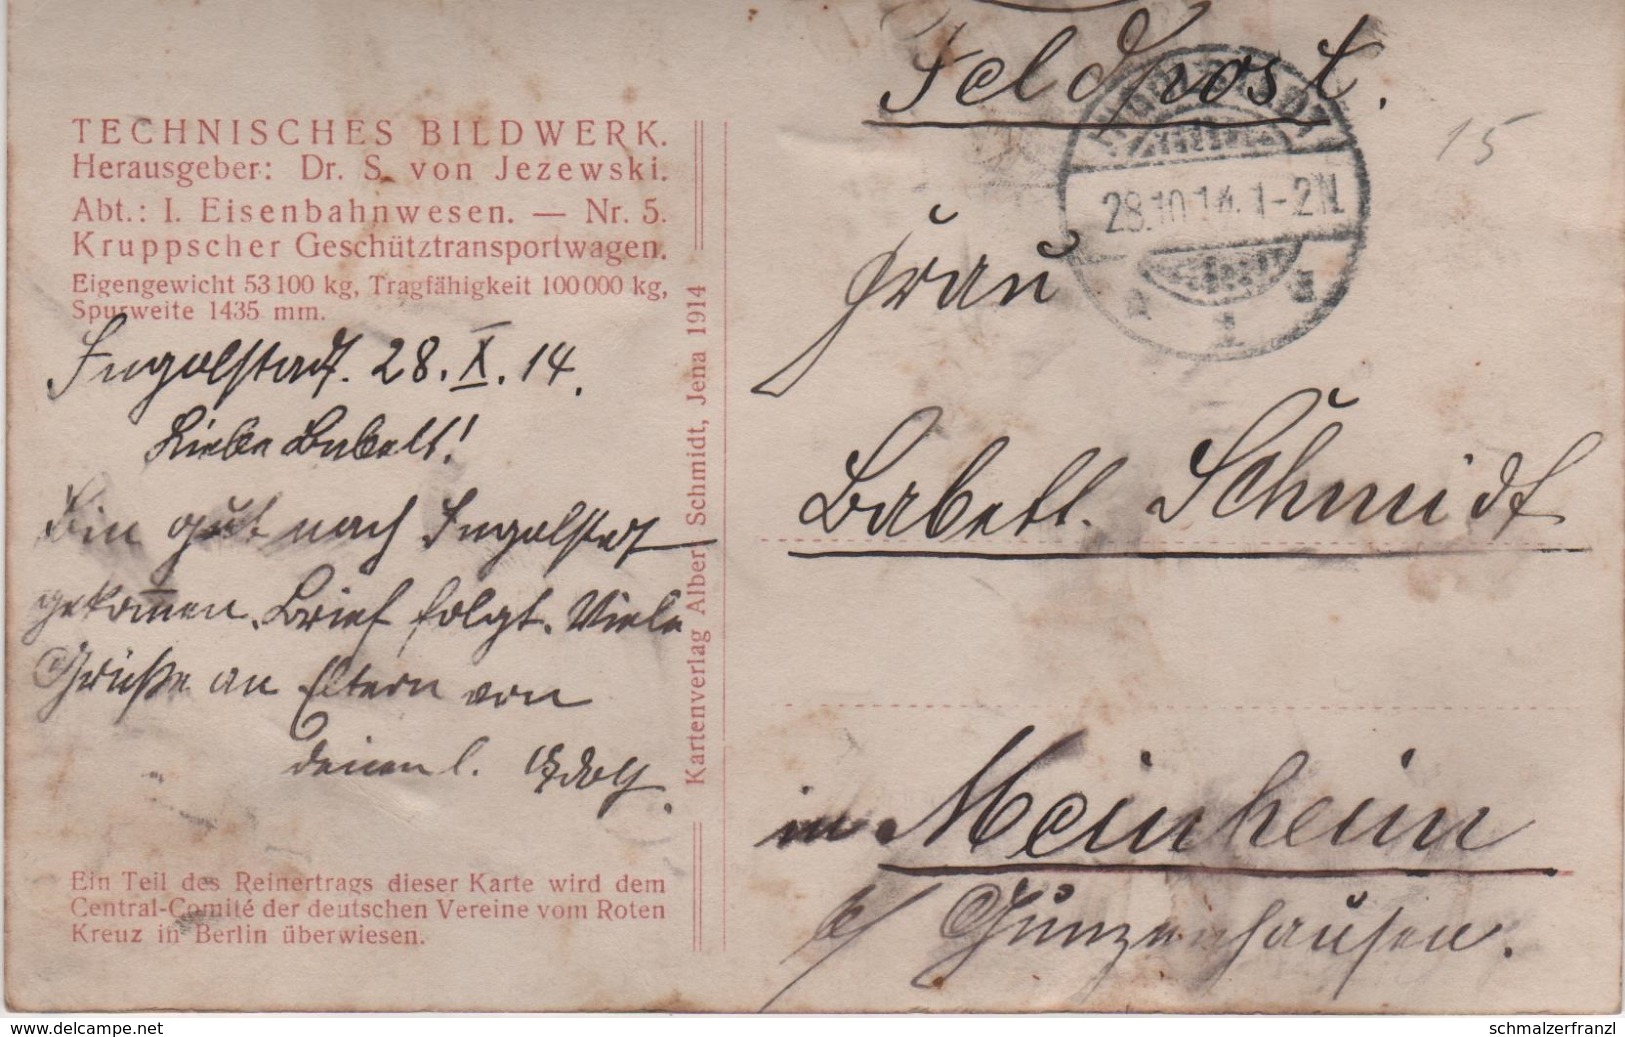 Feldpost.
15
TECHNISCHES BILDWERK.
Herausgeber: Dr. S. von Jezewski.
Abt.: I. Eisenbahnwesen. — Nr. 5.
Kruppscher Geschütztransportwagen.
Eigengewicht 53100 kg, Tragfähigkeit 100000 kg,
Spurweite 1435 mm.
Ingolstadt. 28. X. 14.
Liebe Babett!
Bin gut nach Ingolstadt
gekommen. Brief folgt. Viele
Grüße an Eltern von
deinem l. Adolf.
Ein Teil des Reinertrags dieser Karte wird dem
Central-Comité der deutschen Vereine vom Roten
Kreuz in Berlin überwiesen.
Kartenverlag Alber Schmidt, Jena 1914
28.10.14. 1-2N.
Frau
Babett. Schmidt
in Meinheim
b/ Gunzenhausen.
www.delcampe.net
schmalzerfranzl